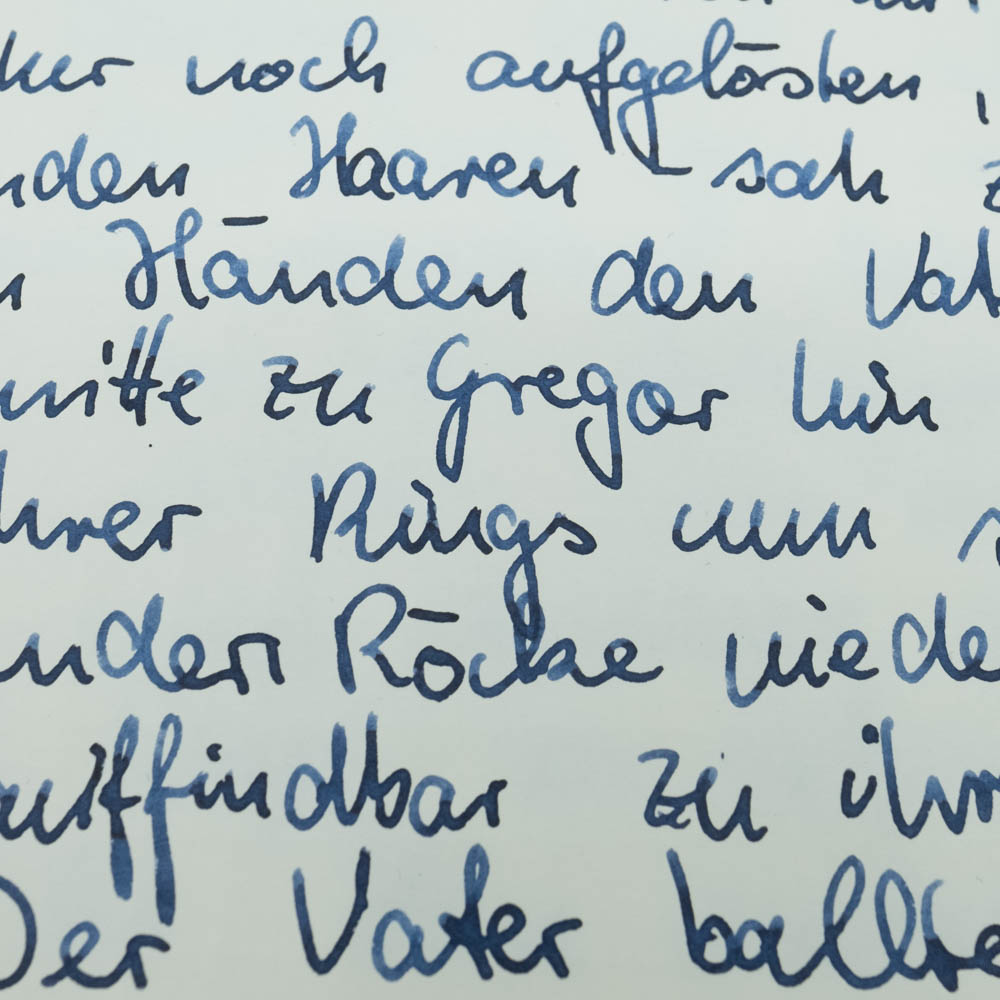 her noch aufgelösten,
nden Haaren – sah z
n Händen den Vat
ritte zu Gregor hin
ihrer Rings um s
nden Röcke niede
auffindbar zu ihr
Der Vater ballte